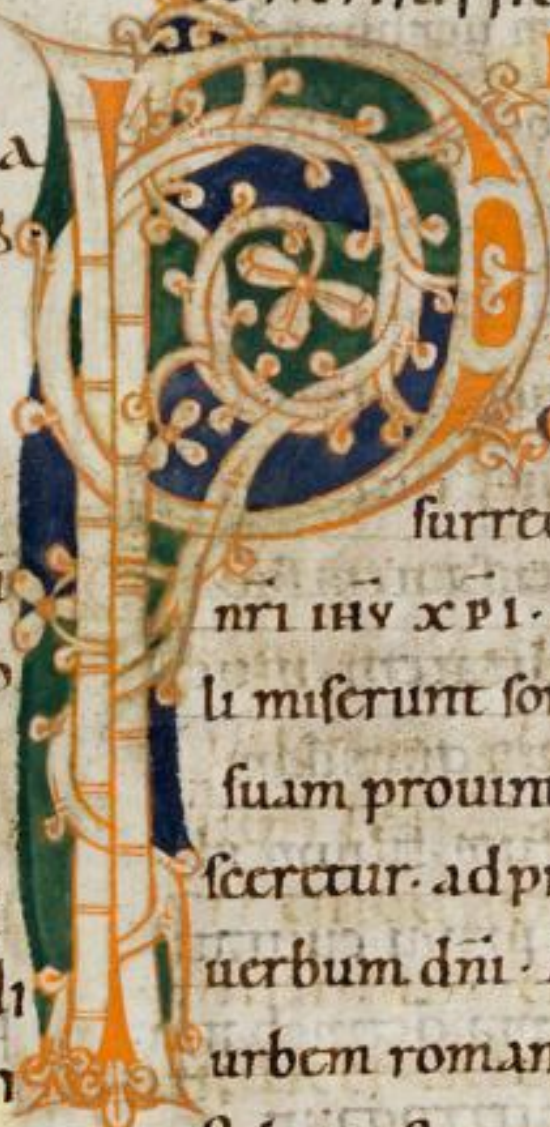 P
surrec
nr̄i ıħv xpı·
li miserunt sor
suam prouin
sceretur· ad pr
uerbum dn̄i·
urbem roman